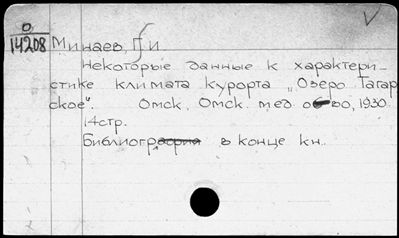 О
14208
Минаев, П.И.
Некоторые данные к характери-
стике климата курорта „Озеро Тагар-
ское". Омск, Омск. мед. о-во, 1930.
14стр.
Библиогр. в конце кн.